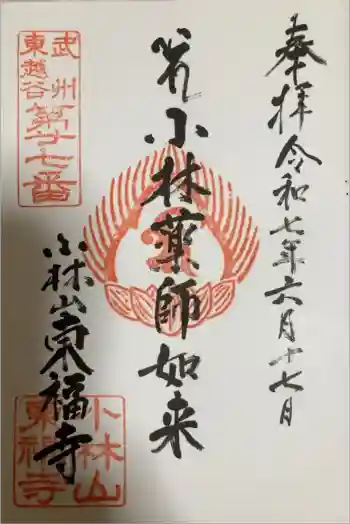 奉拝令和七年六月十七日
小林薬師如来
武州
東越谷
第廿七番
小林山東福寺
小林山
東福寺